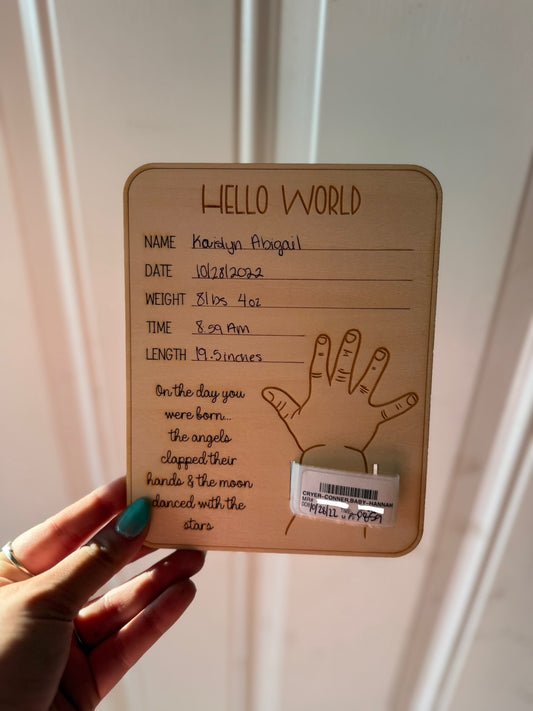 HELLO WORLD
NAME Kaislyn Abigail
DATE 10/28/2022
WEIGHT 8lbs 4oz
TIME 8 59 Am
LENGTH 19.5 inches
On the day you
were born...
the angels
clapped their
hands & the moon
danced with the
stars
CRYER-CONNER,BABY-HANNAH
MR#
DOB 10/28/22